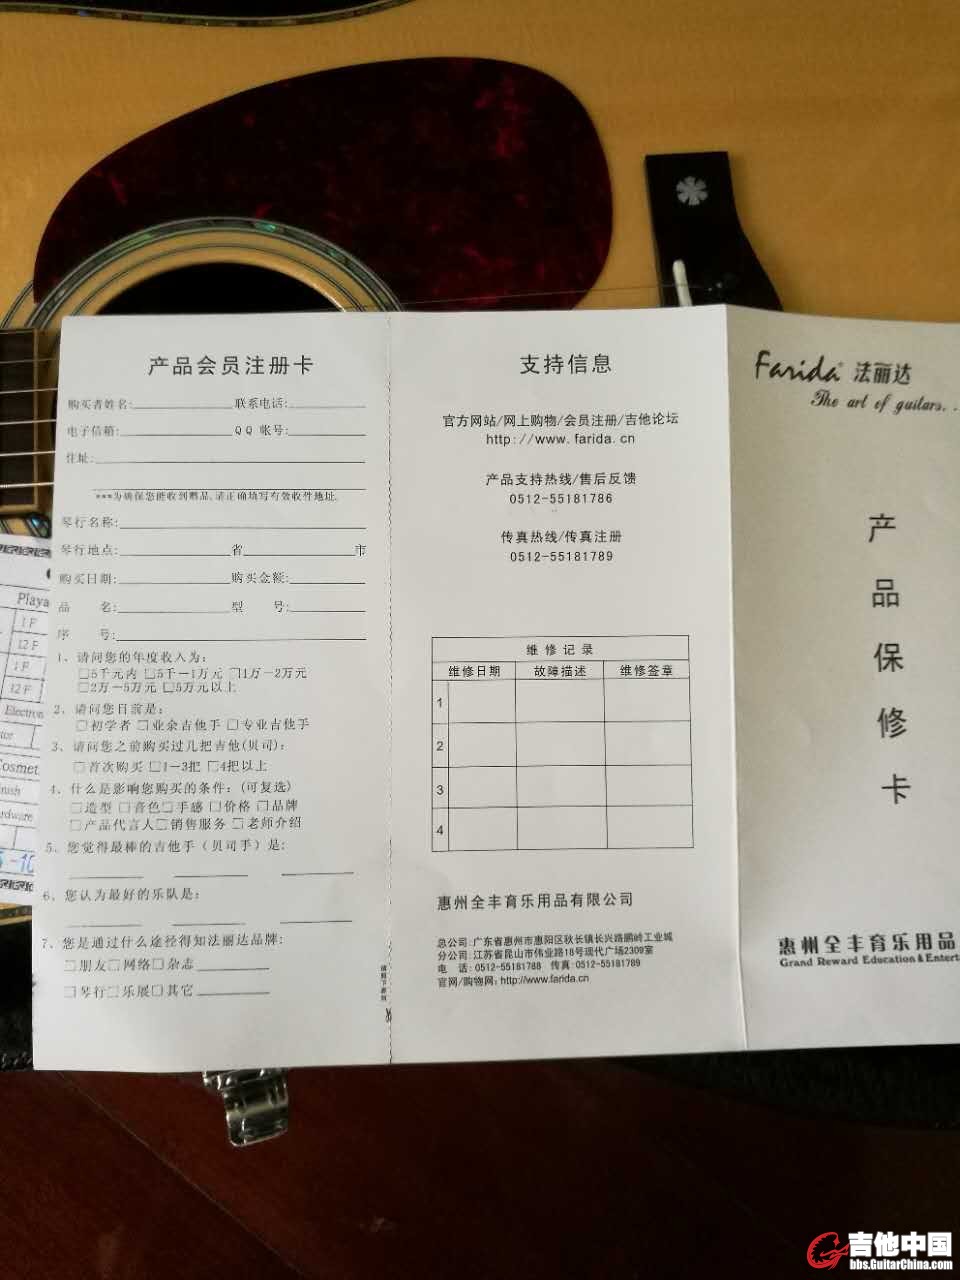 产品会员注册卡
购买者姓名: 联系电话:
电子信箱: QQ 帐号:
住址:
***为确保您能收到赠品,请正确填写有效收件地址.
琴行名称:
琴行地点: 省 市
购买日期: 购买金额:
品 名: 型 号:
序 号:
1、请问您的年度收入为:
□5千元内 □5千-1万元 □1万-2万元
□2万-5万元 □5万元以上
2、请问您目前是:
□初学者 □业余吉他手 □专业吉他手
3、请问您之前购买过几把吉他(贝司):
□首次购买 □1-3把 □4把以上
4、什么是影响您购买的条件: (可复选)
□造型 □音色□手感 □价格 □品牌
□产品代言人□销售服务 □老师介绍
5、您觉得最棒的吉他手 (贝司手) 是:
6、您认为最好的乐队是:
7、您是通过什么途径得知法丽达品牌:
□朋友□网络□杂志
□琴行□乐展□其它
支持信息
官方网站/网上购物/会员注册/吉他论坛
http://www.farida.cn
产品支持热线/售后反馈
0512-55181786
传真热线/传真注册
0512-55181789
维修记录
维修日期 故障描述 维修签章
1
2
3
4
惠州全丰育乐用品有限公司
总公司:广东省惠州市惠阳区秋长镇长兴路鹏岭工业城
分公司:江苏省昆山市伟业路18号现代广场2309室
电 话:0512-55181788 传真:0512-55181789
官网/购物网:http://www.farida.cn
Farida 法丽达
The art of guitars..
产品保修卡
惠州全丰育乐用品
Grand Reward Education & Entert
Playa
1 F
12 F
1 F
12 F
Electron
tor
Cosmet
nish
rdware
吉他中国
bbs.GuitarChina.com